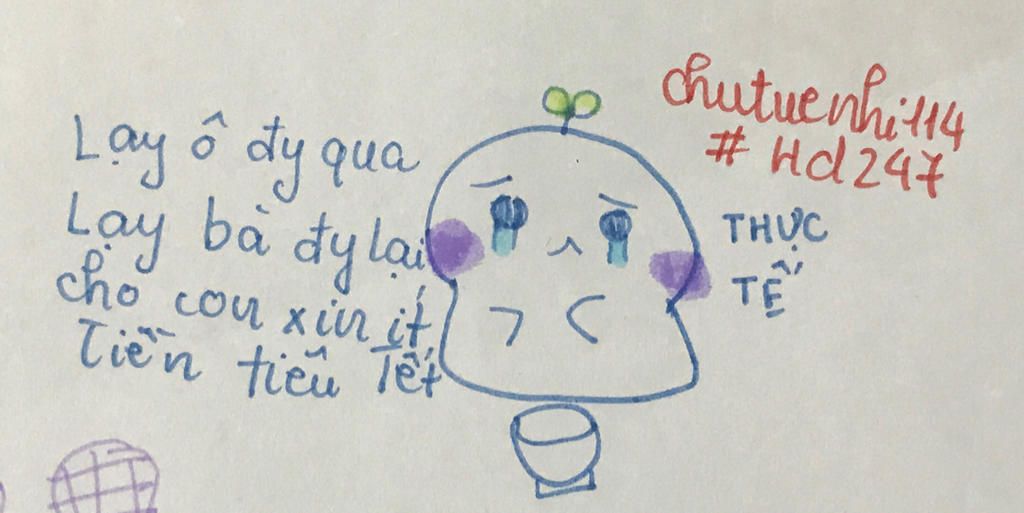 Lạy ô đy qua
Lạy bà đy lại
cho con xin ít
Tiền tiêu Tết
chutuenhi114
# Hd247
THỰC
TẾ